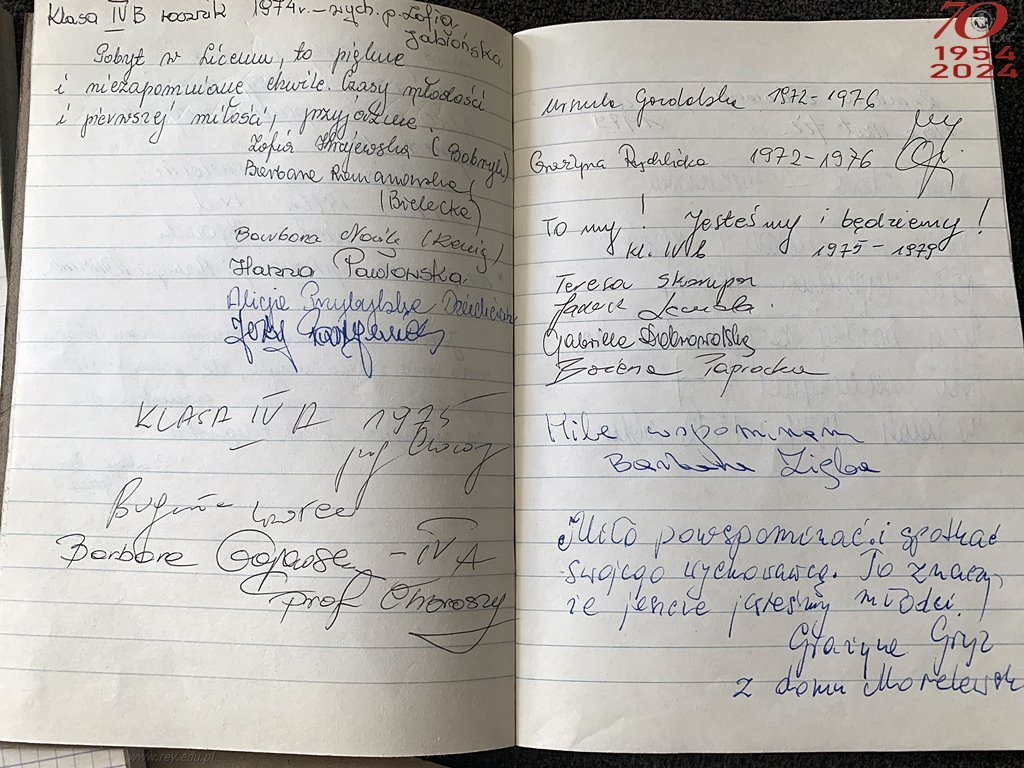 Klasa IV B rocznik 1974r. – wych. p. Zofia
Jabłońska
Pobyt w Liceum, to piękne
i niezapomniane chwile. Czasy młodości
i pierwszej miłości, przyjaźnie.
Zofia Krajewska (Bobryk)
Barbara Romanowska
(Bielecka)
Barbara Nowik (Kenig)
Hanna Pawłowska
Alicja Przybylska
Jerzy
KLASA IV A 1975
Barbara – IV A
prof Choroszy
70
1954
2024
Urszula 1972–1976
Grażyna Rydelicka 1972–1976
To my! Jesteśmy i będziemy!
kl. IVb 1975–1979
Teresa Skarupa
Jacek
Gabriela Dobrowolska
Bożena Paprocka
Miłe wspominam
Barbara Zięba
Miło powspominać i spotkać
swojego wychowawcę. To znaczy,
że jeszcze jesteśmy młodzi!
Grażyna Gryz
z domu
www.rey.edu.pl